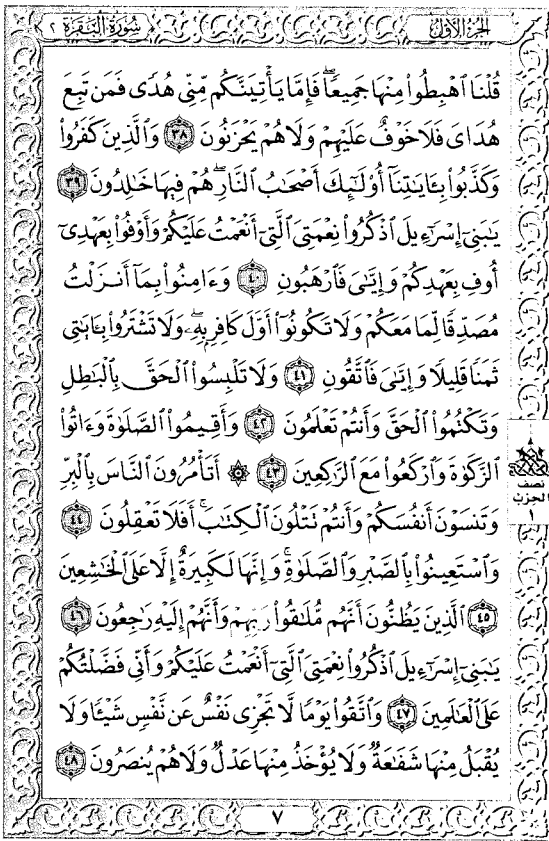 الجزء الأول
سورة البقرة ٢
قُلْنَا ٱهْبِطُوا۟ مِنْهَا جَمِيعًا ۖ فَإِمَّا يَأْتِيَنَّكُم مِّنِّى هُدًى فَمَن تَبِعَ
هُدَاىَ فَلَا خَوْفٌ عَلَيْهِمْ وَلَا هُمْ يَحْزَنُونَ ٣٨ وَٱلَّذِينَ كَفَرُوا۟
وَكَذَّبُوا۟ بِـَٔايَـٰتِنَآ أُو۟لَـٰٓئِكَ أَصْحَـٰبُ ٱلنَّارِ ۖ هُمْ فِيهَا خَـٰلِدُونَ ٣٩
يَـٰبَنِىٓ إِسْرَٰٓءِيلَ ٱذْكُرُوا۟ نِعْمَتِىَ ٱلَّتِىٓ أَنْعَمْتُ عَلَيْكُمْ وَأَوْفُوا۟ بِعَهْدِىٓ
أُوفِ بِعَهْدِكُمْ وَإِيَّـٰىَ فَٱرْهَبُونِ ٤٠ وَءَامِنُوا۟ بِمَآ أَنزَلْتُ
مُصَدِّقًا لِّمَا مَعَكُمْ وَلَا تَكُونُوٓا۟ أَوَّلَ كَافِرٍۭ بِهِۦ ۖ وَلَا تَشْتَرُوا۟ بِـَٔايَـٰتِى
ثَمَنًا قَلِيلًا وَإِيَّـٰىَ فَٱتَّقُونِ ٤١ وَلَا تَلْبِسُوا۟ ٱلْحَقَّ بِٱلْبَـٰطِلِ
وَتَكْتُمُوا۟ ٱلْحَقَّ وَأَنتُمْ تَعْلَمُونَ ٤٢ وَأَقِيمُوا۟ ٱلصَّلَوٰةَ وَءَاتُوا۟
ٱلزَّكَوٰةَ وَٱرْكَعُوا۟ مَعَ ٱلرَّٰكِعِينَ ٤٣ ۞ أَتَأْمُرُونَ ٱلنَّاسَ بِٱلْبِرِّ
وَتَنسَوْنَ أَنفُسَكُمْ وَأَنتُمْ تَتْلُونَ ٱلْكِتَـٰبَ ۚ أَفَلَا تَعْقِلُونَ ٤٤
وَٱسْتَعِينُوا۟ بِٱلصَّبْرِ وَٱلصَّلَوٰةِ ۚ وَإِنَّهَا لَكَبِيرَةٌ إِلَّا عَلَى ٱلْخَـٰشِعِينَ
٤٥ ٱلَّذِينَ يَظُنُّونَ أَنَّهُم مُّلَـٰقُوا۟ رَبِّهِمْ وَأَنَّهُمْ إِلَيْهِ رَٰجِعُونَ ٤٦
يَـٰبَنِىٓ إِسْرَٰٓءِيلَ ٱذْكُرُوا۟ نِعْمَتِىَ ٱلَّتِىٓ أَنْعَمْتُ عَلَيْكُمْ وَأَنِّى فَضَّلْتُكُمْ
عَلَى ٱلْعَـٰلَمِينَ ٤٧ وَٱتَّقُوا۟ يَوْمًا لَّا تَجْزِى نَفْسٌ عَن نَّفْسٍ شَيْـًٔا وَلَا
يُقْبَلُ مِنْهَا شَفَـٰعَةٌ وَلَا يُؤْخَذُ مِنْهَا عَدْلٌ وَلَا هُمْ يُنصَرُونَ ٤٨
نصف
الحزب
١
٧